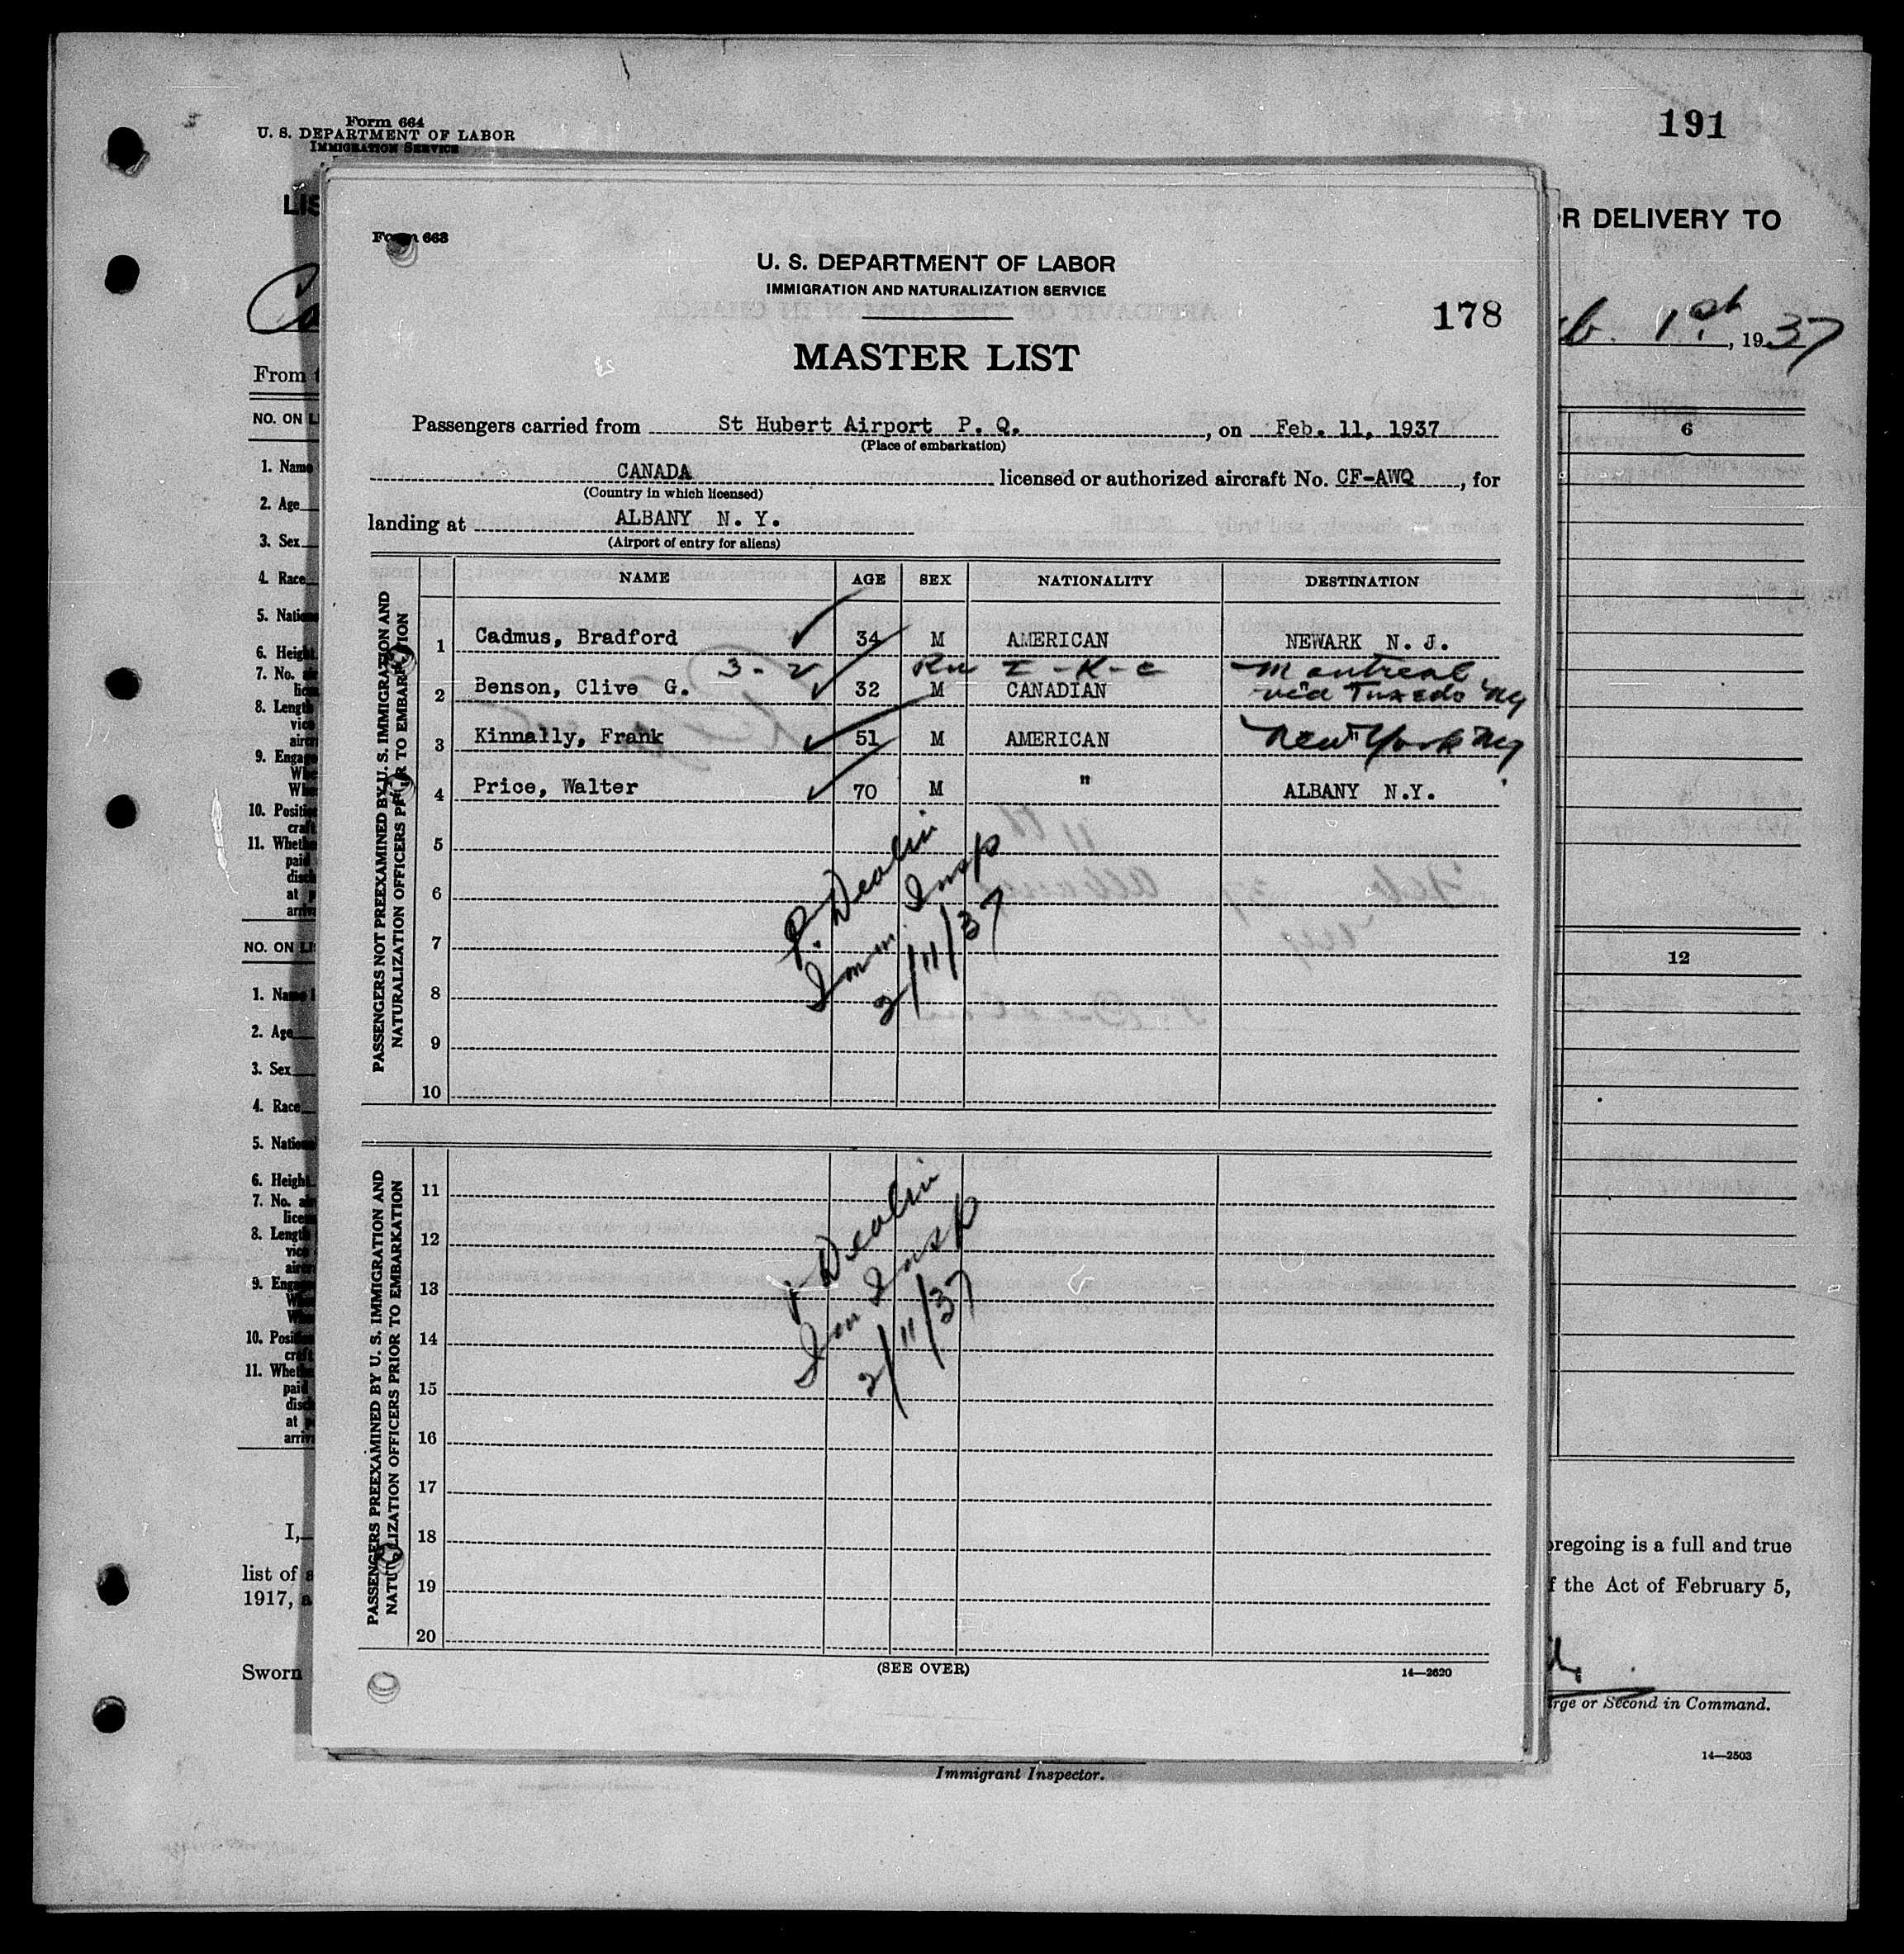 Form 664
U. S. DEPARTMENT OF LABOR
IMMIGRATION SERVICE
191
LIS
R DELIVERY TO
Form 663
U. S. DEPARTMENT OF LABOR
IMMIGRATION AND NATURALIZATION SERVICE
178
1st, 1937
MASTER LIST
From
Passengers carried from St Hubert Airport P. Q., on Feb. 11, 1937
(Place of embarkation)
CANADA licensed or authorized aircraft No. CF-AWQ, for
(Country in which licensed)
landing at ALBANY N. Y.
(Airport of entry for aliens)
PASSENGERS NOT PREEXAMINED BY U. S. IMMIGRATION AND
NATURALIZATION OFFICERS PRIOR TO EMBARKATION
NAME AGE SEX NATIONALITY DESTINATION
1 Cadmus, Bradford 34 M AMERICAN NEWARK N. J.
3 - 2 I - K - c Montreal
2 Benson, Clive G. 32 M CANADIAN via Tuxedo NY
3 Kinnally, Frank 51 M AMERICAN New York NY
4 Price, Walter 70 M " ALBANY N.Y.
5
6
7
8
9
10
P. Dealin
Imm. Insp
2/11/37
PASSENGERS PREEXAMINED BY U. S. IMMIGRATION AND
NATURALIZATION OFFICERS PRIOR TO EMBARKATION
11
12
13
14
15
16
17
18
19
20
P Dealin
Imm Insp
2/11/37
(SEE OVER)
14—2620
NO. ON LI
1. Name
2. Age
3. Sex
4. Race
5. Nation
6. Height
7. No.
8. Length
9. Engag
10. Positi
craft
11. Wheth
paid
disch
at p
arriv
NO. ON LI
1. Name
2. Age
3. Sex
4. Race
5. Nation
6. Height
7. No.
8. Length
9. Engag
10. Positi
craft
11. Wheth
paid
disch
at p
arriv
6
12
I,
list of
1917, a
Sworn
oregoing is a full and true
f the Act of February 5,
rge or Second in Command.
14—2503
Immigrant Inspector.